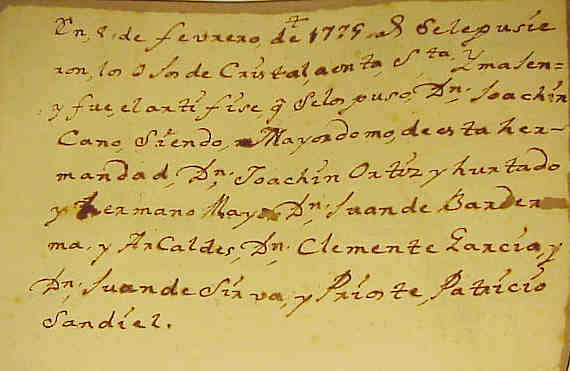 En, 8, de fevrero, de 1775 aS Selepusie
ron, los Ojos de Cristal, a enta, Sta. Ymasen=
y fue, el artifise, q Selos puso, Dn. Joachin
Cano, Siendo, Mayordomo, de esta her-
mandad, Dn. Joachin Ortiz y hurtado
y hermano Mayor Dn. Juan de Barder
ma. y ArCaldes, Dn. Clemente Garcia, y
Dn. Juan de Sirva, y Prioste Patricio
Sandiel.